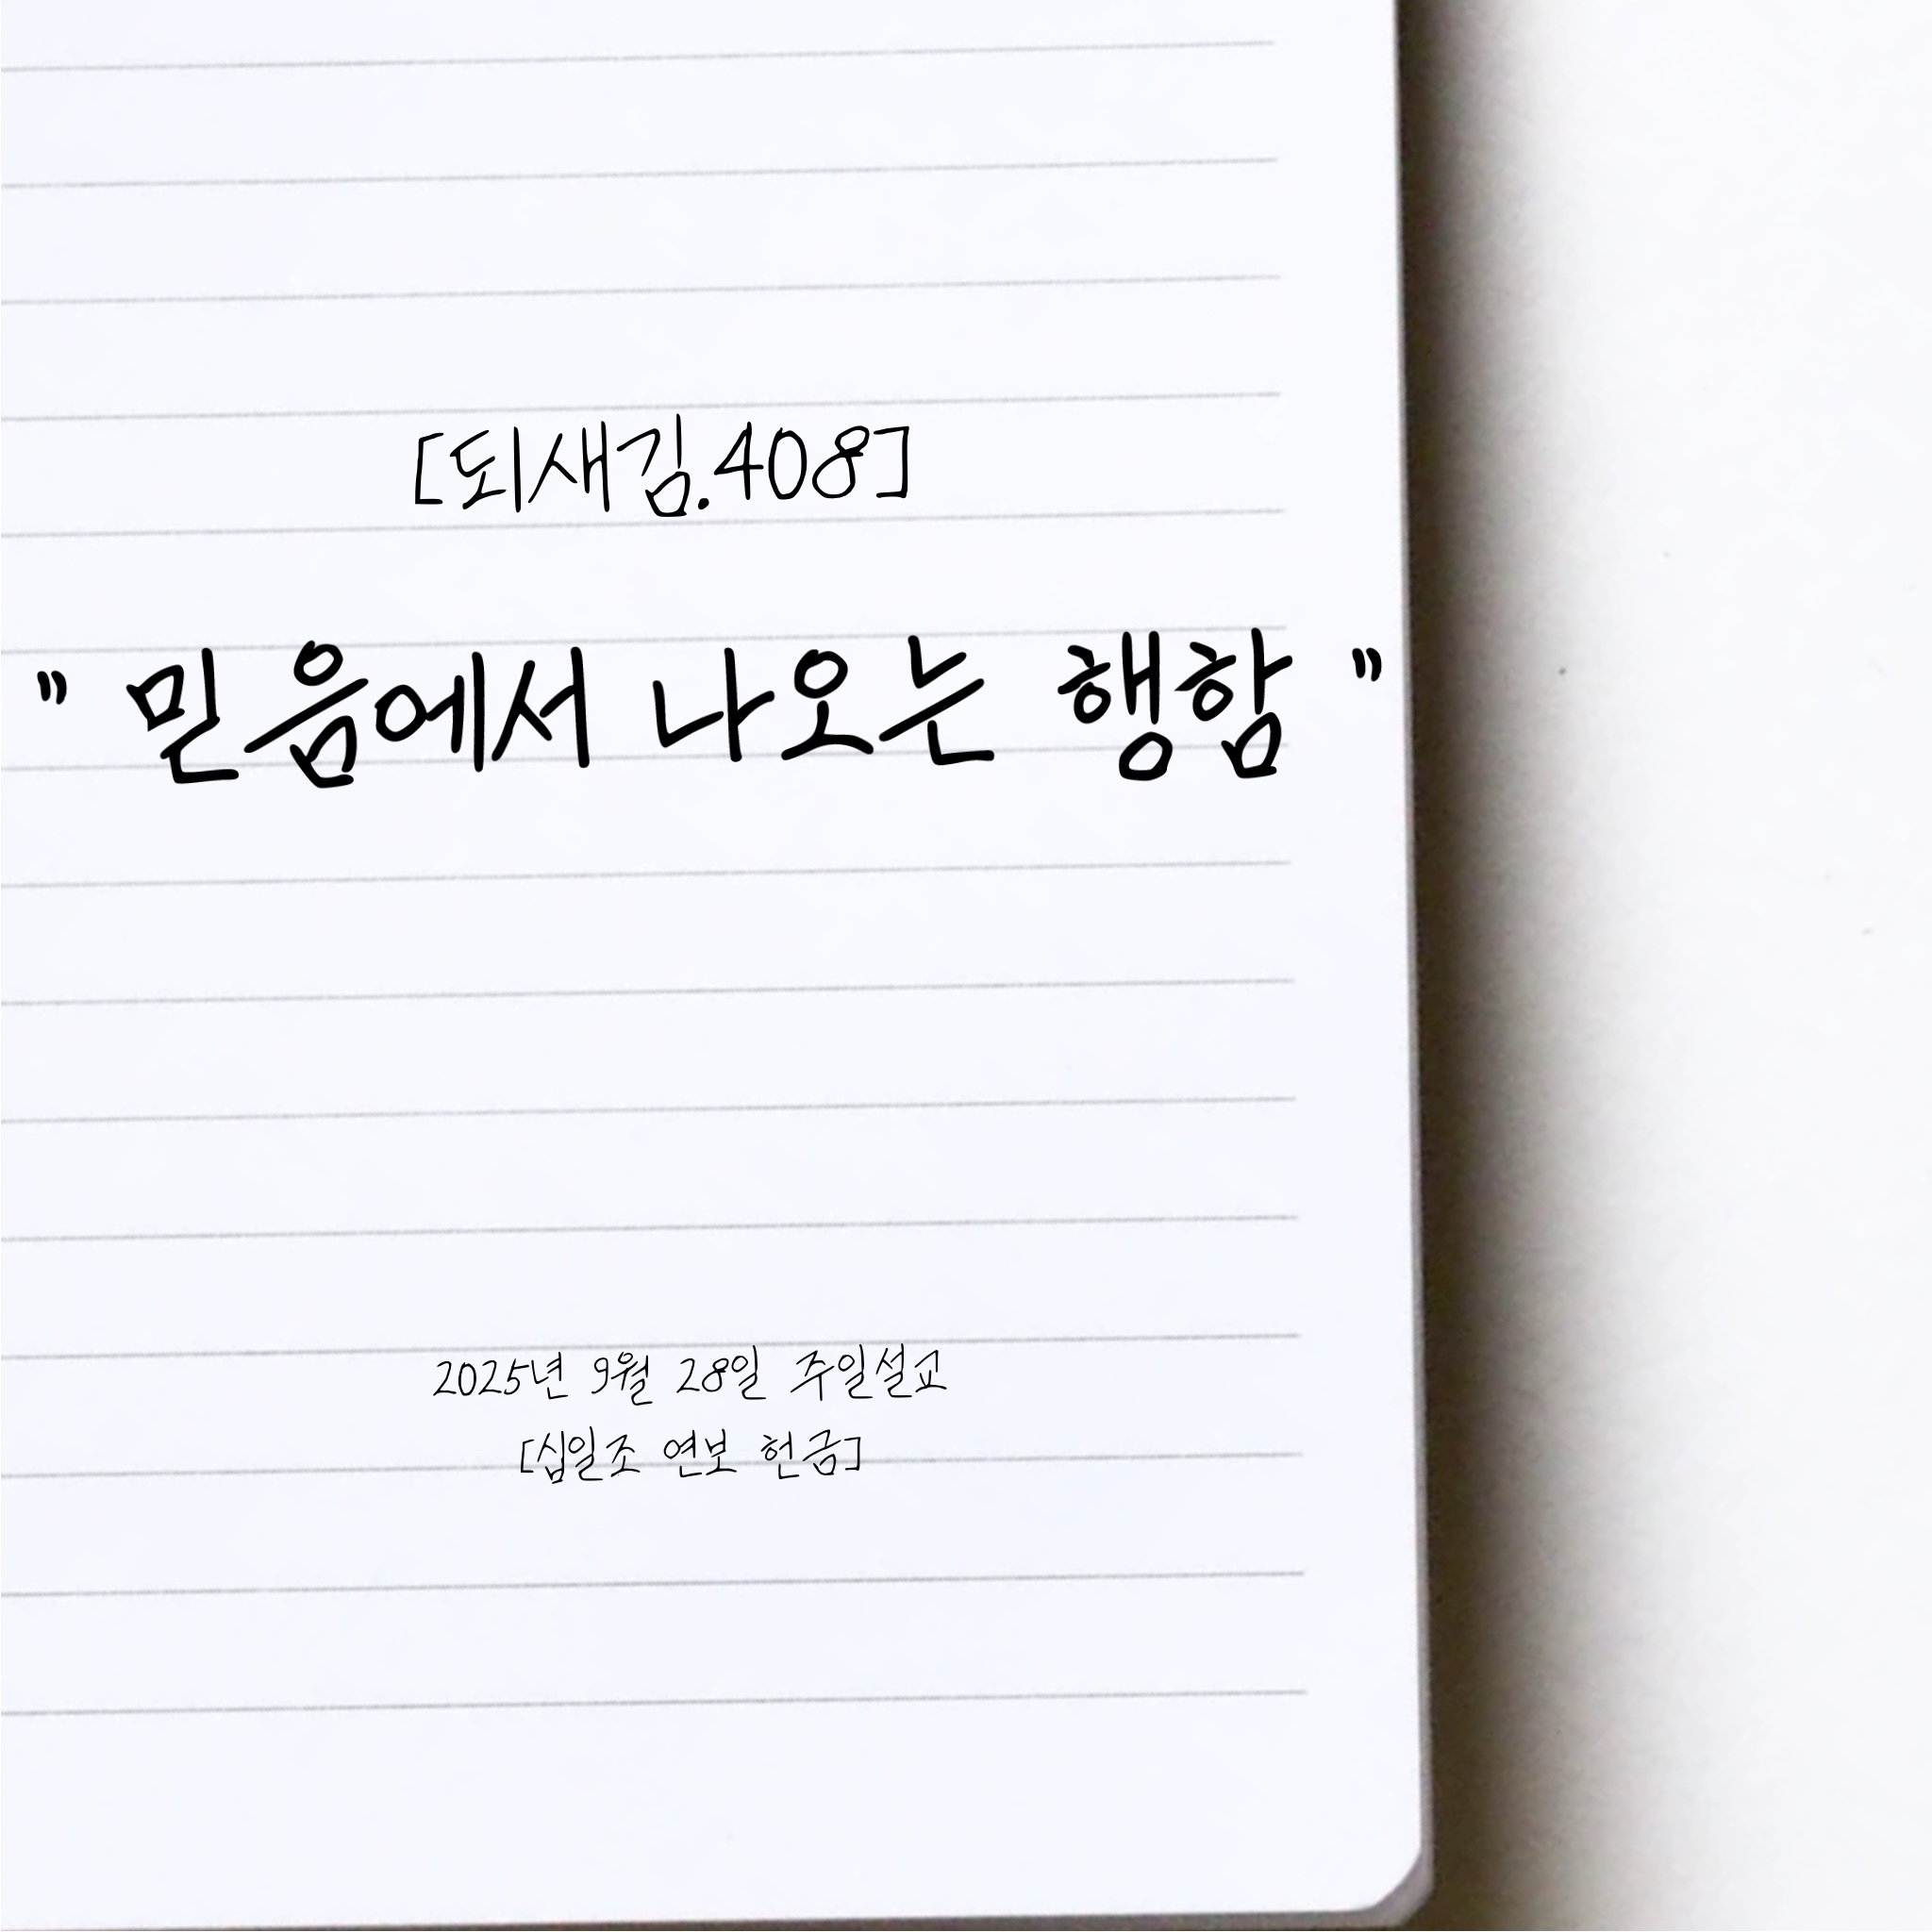 [되새김.408]
" 믿음에서 나오는 행함 "
2025년 9월 28일 주일설교
[십일조 연보 헌금]